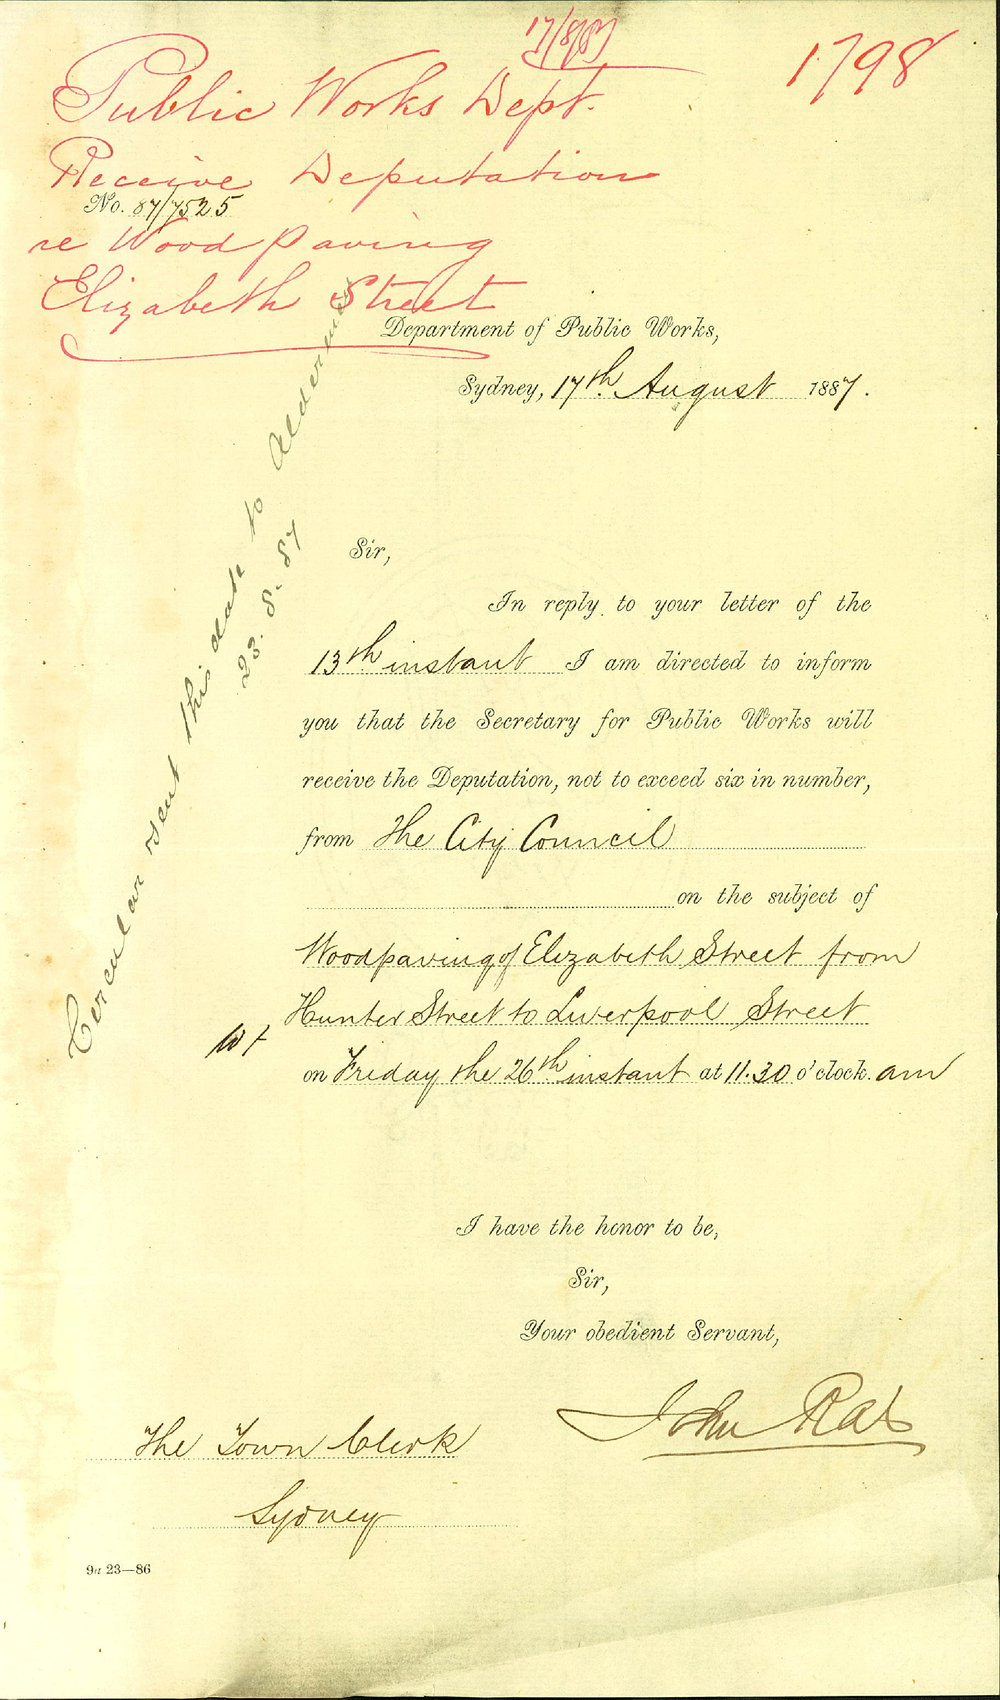 17/8/87
1798
Public Works Dept.
Receive Deputation
No. 87/7525
re Wood paving
Elizabeth Street
Department of Public Works,
Sydney, 17th. August 1887.
Circular sent this date to Aldermen
23.8.87
Sir,
In reply to your letter of the
13th instant I am directed to inform
you that the Secretary for Public Works will
receive the Deputation, not to exceed six in number,
from The City Council
on the subject of
Woodpaving of Elizabeth Street from
Hunter Street to Liverpool Street
on Friday the 26th instant at 11.30 o'clock. am
I have the honor to be,
Sir,
Your obedient Servant,
John Rae
The Town Clerk
Sydney
9a 23—86